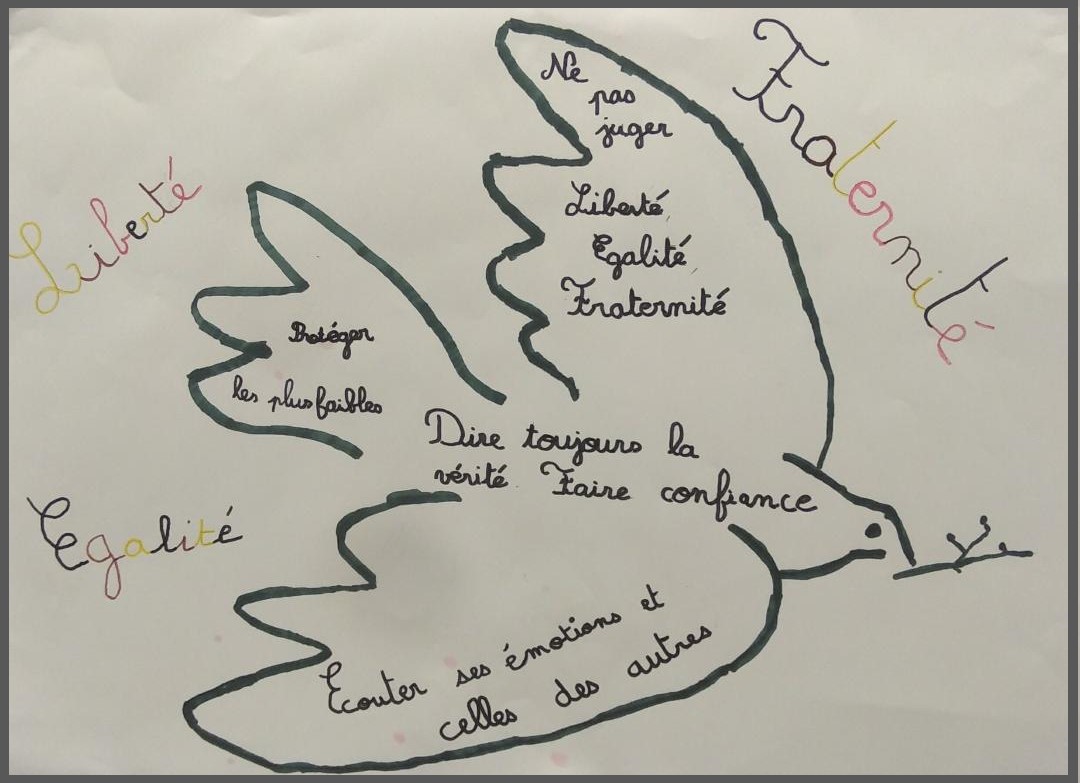 Fraternité
Liberté
Egalité
Ne
pas
juger
Liberté
Egalité
Fraternité
Protéger
les plus faibles
Dire toujours la
vérité Faire confiance
Ecouter ses émotions et
celles des autres